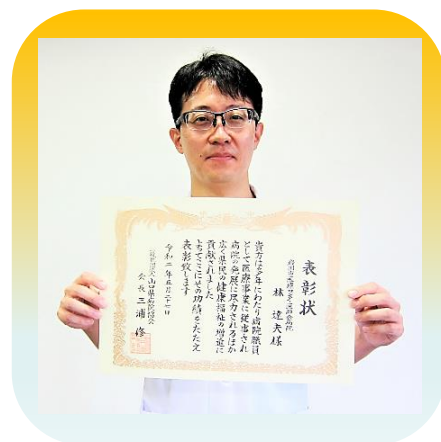 表彰状
林 達夫 様
貴方は多年にわたり病院職員
として医療事業に従事され
病院の発展に尽力されるほか
広く県民の健康福祉の増進に
貢献されました
よってここにその功績をたたえ
表彰致します
会長 三浦 修